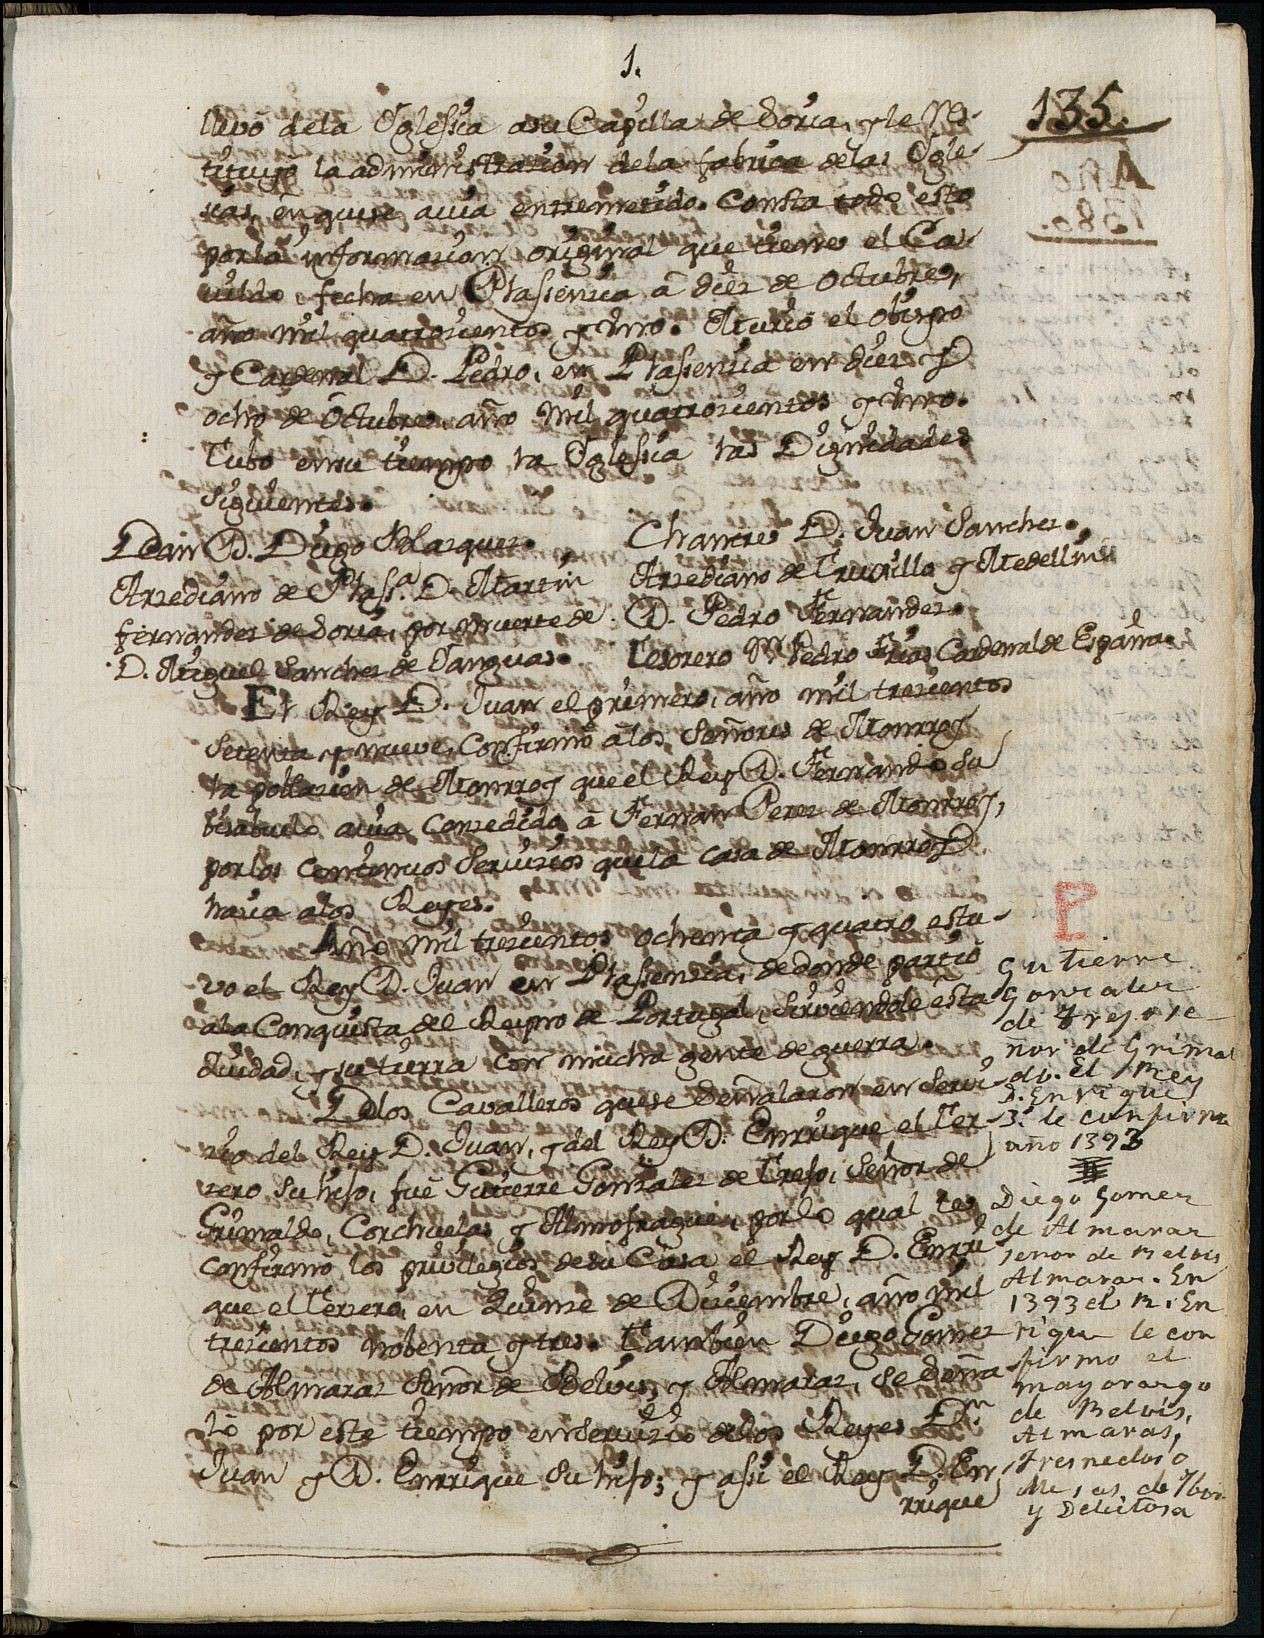 1.
135.
llevó dela Iglesia asu Capilla de Soria, y le res-
tituyó la administracion dela fabrica delas Igle-
sias, en quese avia entremetido. Consta todo esto
porla informacion original que tiene el Ca-
vildo, fecha en Plasencia á diez de Octubre,
año mil quatrocientos y uno. Murió el obispo
y Cardenal D. Pedro, en Plasencia en diez y
ocho de Octubre, año mil quatrocientos y uno.
Tubo ensu tiempo la Iglesia las Dignidades
siguientes.
Dean D. Diego Blazquez.
Arzediano de Plasª. D. Martin
fernandez de Soria, por muerte de
D. Miguel Sanchez de Yanguas.
Chantre D. Juan Sanchez.
Arzediano de Truxillo y Medellin
D. Pedro Fernandez.
Tesorero Pedro Frias, Cardenal de España.
El Rey D. Juan el primero, año mil trecientos
setenta y nueve, confirmó álos Señores de Monrroy
la poblacion de Monrroy que el Rey D. Fernando su
bisabuelo avia concedido á Fernan Perez de Monrroy,
porlos continuos servicios quela casa de Monrroy
hacia alos Reyes.
Año mil trecientos ochenta y quatro estu-
vo el Rey D. Juan en Plasencia, dedonde partió
ala Conquista del Reyno de Portugal, sirviendole esta
Ciudad, y su tierra con mucha gente de guerra.
Delos Cavalleros quese señalaron en servi-
cio del Rey D. Juan, y del Rey D. Enrrique el Ter-
zero, su hijo, fué Gutierre Gonzalez de Trejo, Señor de
Grimaldo, Corchuelas y Almofrague, por lo qual les
confirmó los privilegios desu Casa el Rey D. Enrri-
que el Terzero, en Quinze de Diciembre, año mil
trecientos nobenta y tres. Tambien Diego Gomez
de Almaraz Señor de Belvis, y Almaraz, se seña-
ló por este tiempo enservicio delos Reyes Dn.
Juan y D. Enrrique su hijo; y asi el Rey D. En
rrique
P
Gutierre
Gonzalez
de Trejo se
ñor de Grimal
do. el Rey
D. Enrique
3º. le confirma
año 1393
Diego Gomez
de Almaraz
señor de Belvis
Almaraz. En
1393 el R. En
rique le con
firmo el
mayorazgo
de Belvis,
Almaras,
Fresnedoso
Mesas de Ybor
y Deleitosa